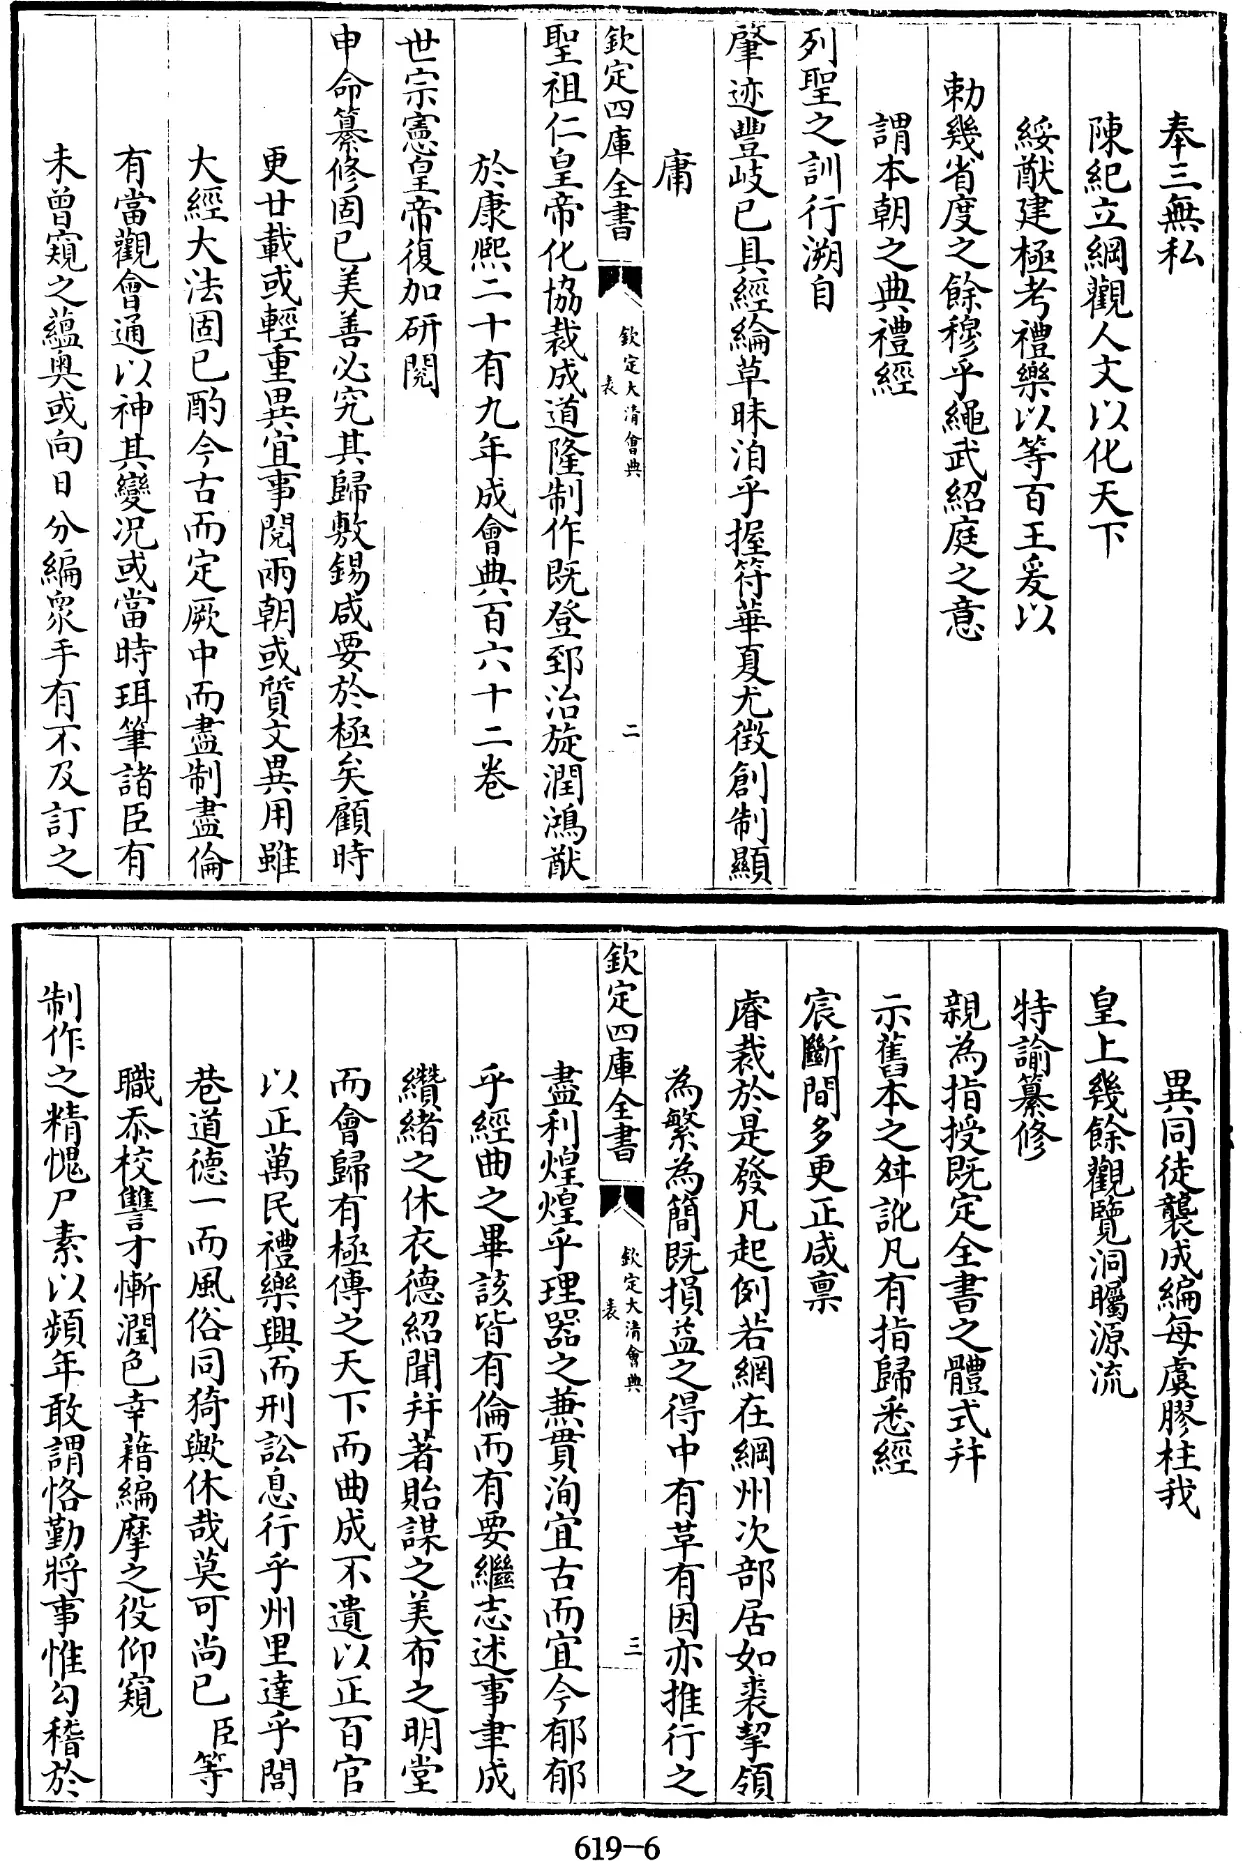 奉三無私
陳紀立綱觀人文以化天下
綏猷建極考禮樂以等百王爰以
勅幾省度之餘穆乎繩武紹庭之意
謂本朝之典禮經
列聖之訓行溯自
肇迹豐岐已具經綸草昧洎乎握符華夏尤徵創制顯
庸
欽定四庫全書
欽定大清會典
表
二
聖祖仁皇帝化協裁成道隆制作既登郅治旋潤鴻猷
於康熙二十有九年成會典百六十二卷
世宗憲皇帝復加研閱
申命纂修固已美善必究其歸敷錫咸要於極矣顧時
更廿載或輕重異宜事閱兩朝或質文異用雖
大經大法固已酌今古而定厥中而盡制盡倫
有當觀會通以神其變況或當時珥筆諸臣有
未曾窺之蘊奥或向日分編衆手有不及訂之
異同徒襲成編每虞膠柱我
皇上幾餘觀覽洞矚源流
特諭纂修
親為指授既定全書之體式幷
示舊本之舛訛凡有指歸悉經
宸斷間多更正咸禀
睿裁於是發凡起例若網在綱州次部居如裘挈領
為繁為簡既損益之得中有革有因亦推行之
欽定四庫全書
欽定大清會典
表
三
盡利煌煌乎理器之兼貫洵宜古而宜今郁郁
乎經曲之畢該皆有倫而有要繼志述事聿成
纘緒之休衣德紹聞幷著貽謀之美布之明堂
而會歸有極傳之天下而曲成不遺以正百官
以正萬民禮樂興而刑訟息行乎州里達乎閭
巷道德一而風俗同猗歟休哉莫可尚已臣等
職忝校讐才慚潤色幸藉編摩之役仰窺
制作之精愧尸素以頻年敢謂恪勤將事惟勾稽於
619-6